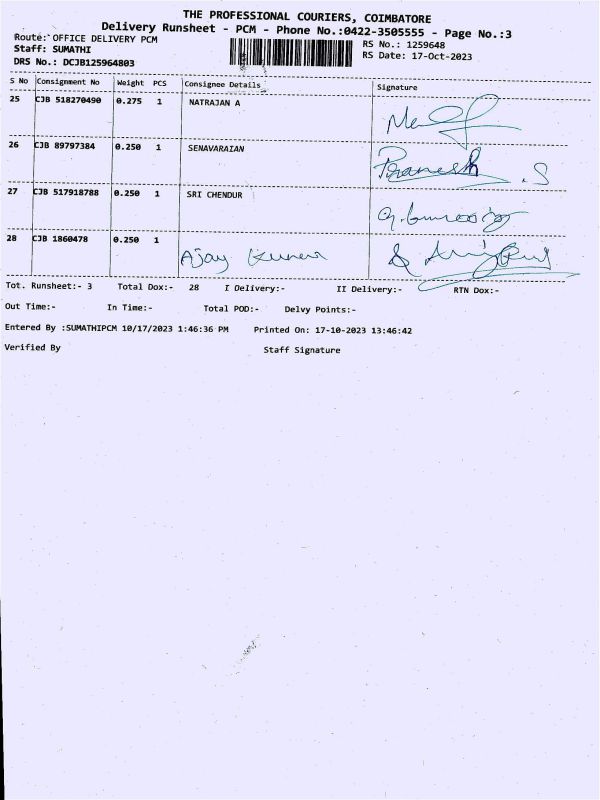 THE PROFESSIONAL COURIERS, COIMBATORE
Delivery Runsheet - PCM - Phone No.:0422-3505555 - Page No.:3
Route: OFFICE DELIVERY PCM
RS No.: 1259648
Staff: SUMATHI
RS Date: 17-Oct-2023
DRS No.: DCJB125964803
S No Consignment No Weight PCS Consignee Details Signature
25 CJB 518270490 0.275 1 NATRAJAN A
26 CJB 89797384 0.250 1 SENAVARAIAN Pranesh .S
27 CJB 517918788 0.250 1 SRI CHENDUR
28 CJB 1860478 0.250 1 Ajay Kumar
Tot. Runsheet:- 3 Total Dox:- 28 I Delivery:- II Delivery:- RTN Dox:-
Out Time:- In Time:- Total POD:- Delvy Points:-
Entered By :SUMATHIPCM 10/17/2023 1:46:36 PM Printed On: 17-10-2023 13:46:42
Verified By Staff Signature